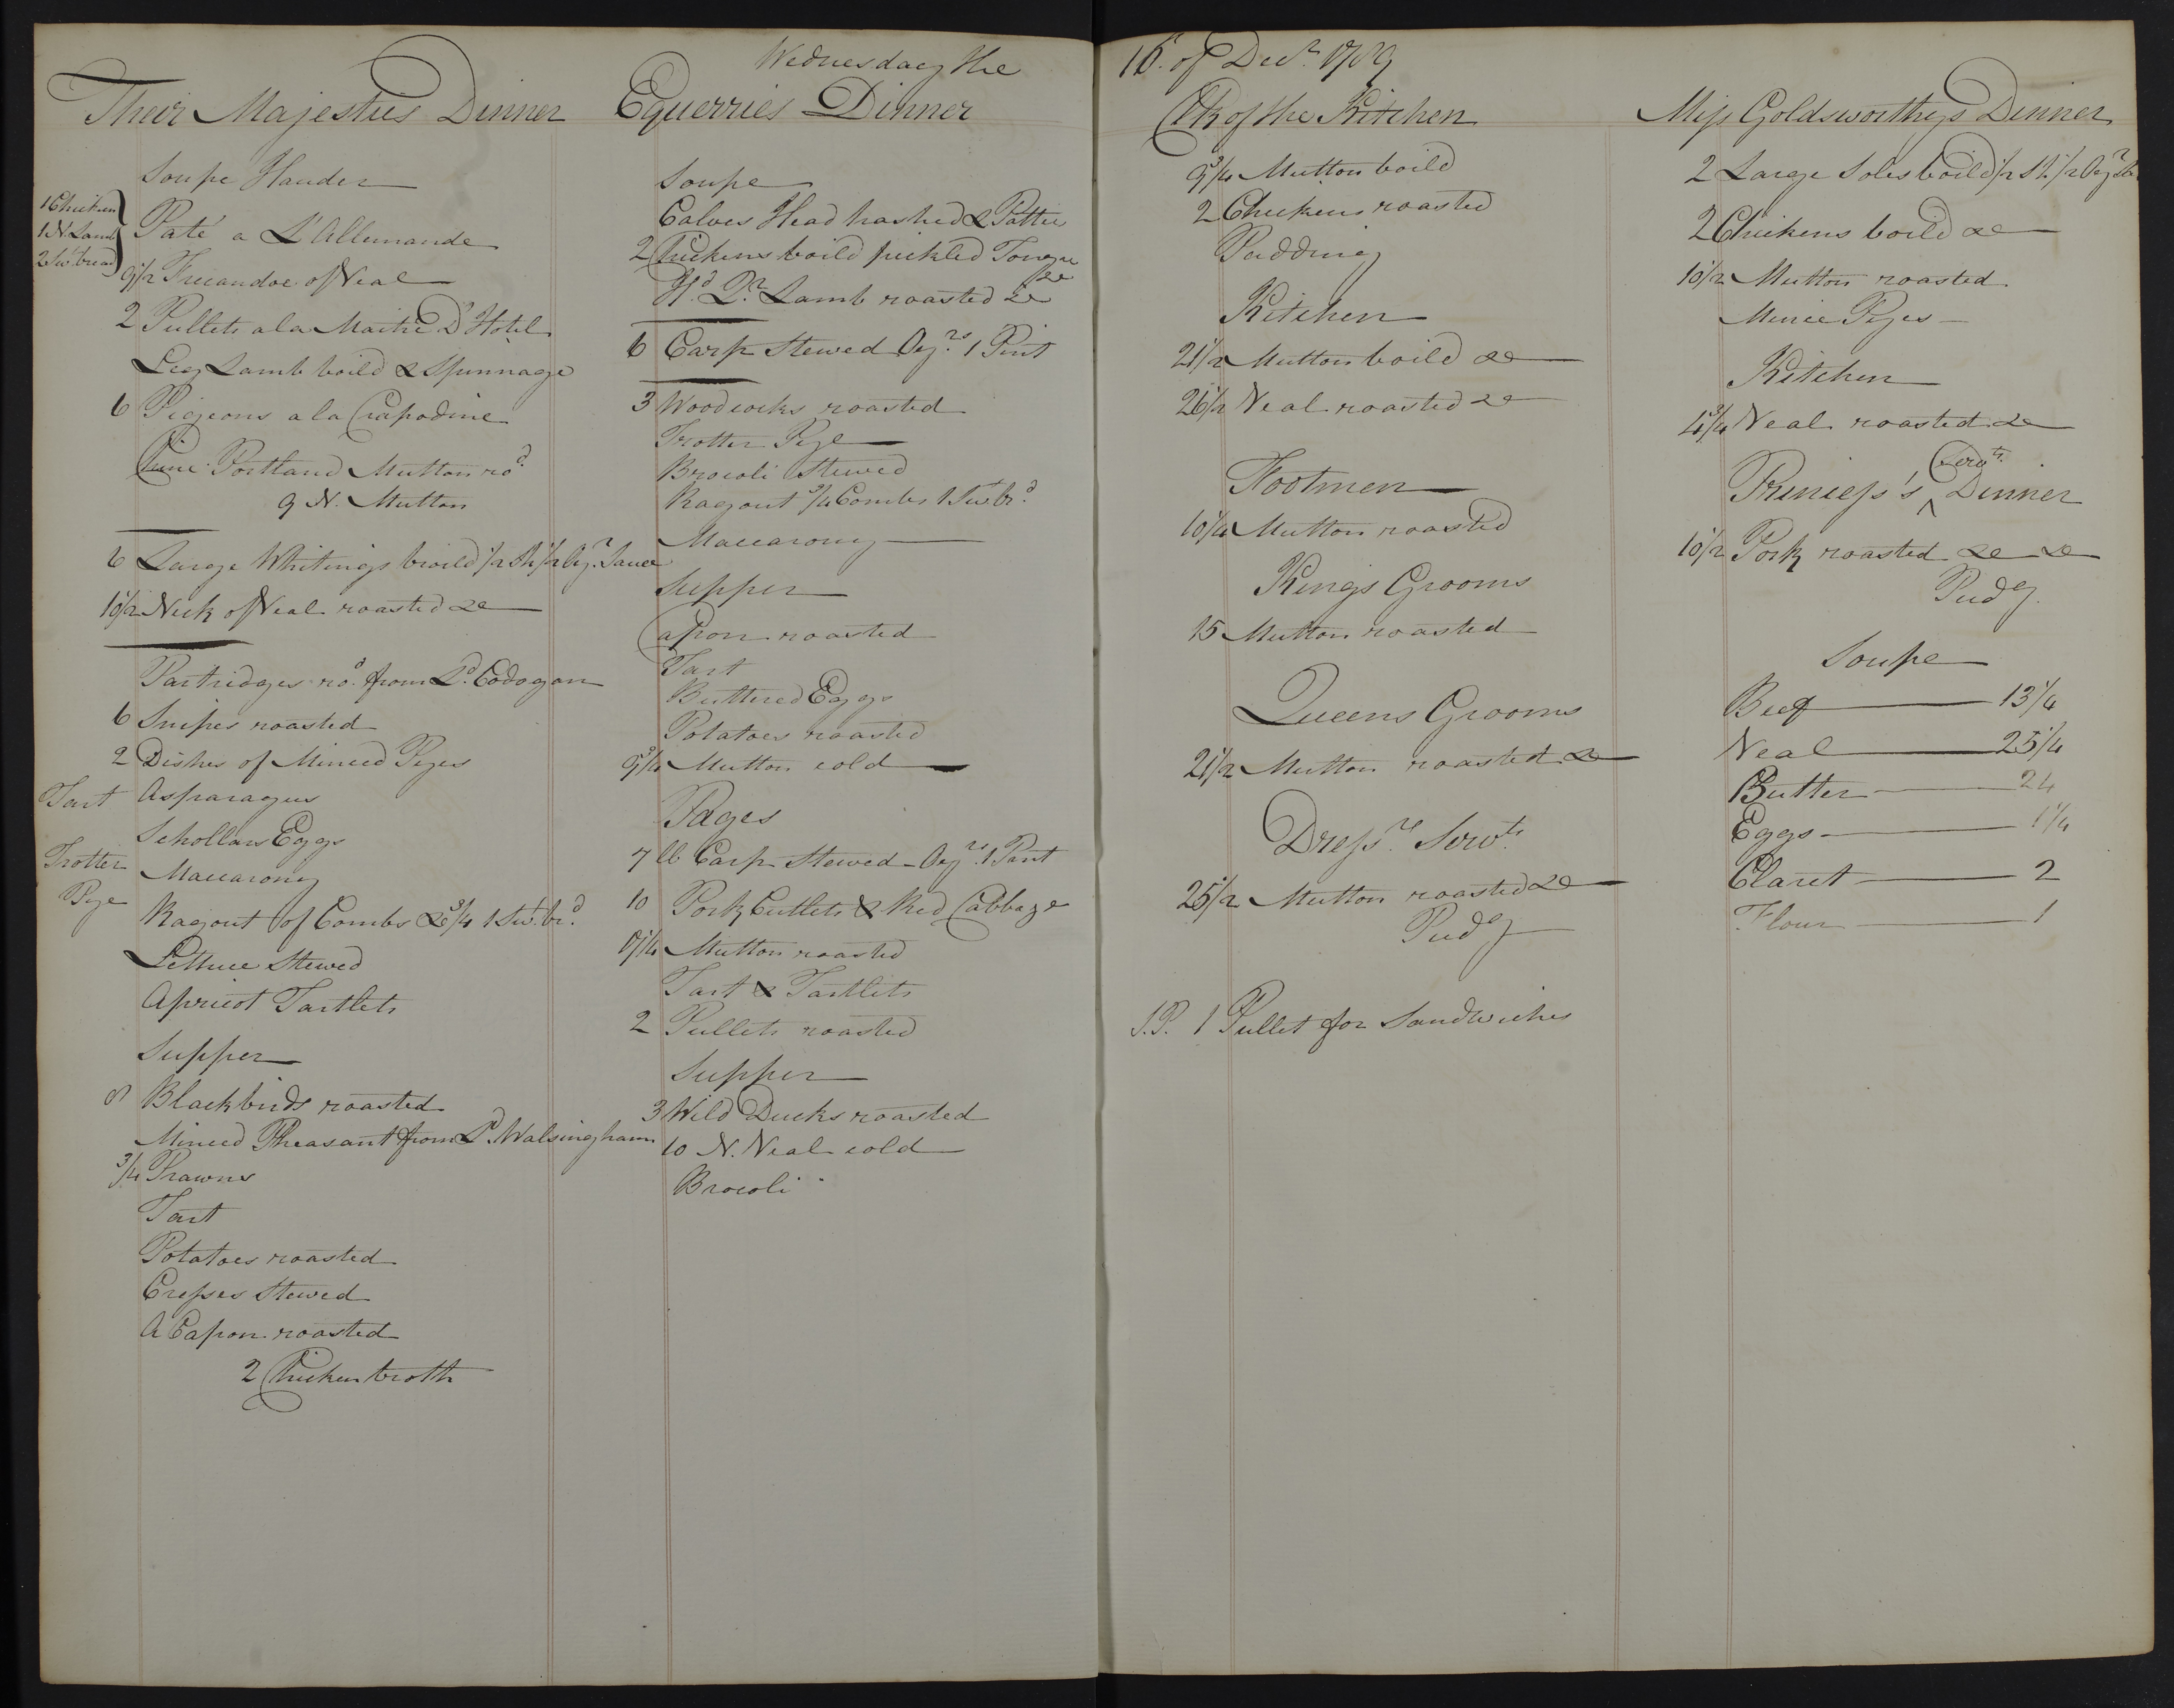 Wednesday the 16. of Decr. 1789
Their Majesties Dinner
Soupe
1 Chicken
1 N. Lamb
2 Sw. bread
Paté a L'Allemande
9 1/2 Fricandoe of Veal
2 Pullets a la Maitre D'Hotel
Leg Lamb boild & Spinnage
6 Pigeons a la Crapodine
Chine Portland Mutton rod.
9 N. Mutton
6 Large Whitings broild 1/2 Sh 1/2 Oyr. Sauce
10 1/2 Neck of Veal roasted &c
Partridges rod. from Ld. Codogan
6 Snipes roasted
2 Dishes of Minced Pyes
Tart
Asparagus
Schollars Eggs
Trotter
Pye
Maccarony
Ragout of Combs &c 3/4 1 Sw. brd.
Lettuce Stewed
Apricot Tartlets
Supper
8 Blackbirds roasted
Minced Pheasant from Ld. Walsingham
3/4 Prawns
Tart
Potatoes roasted
Cresses Stewed
A Capon roasted
2 Chicken broth
Equerries Dinner
Soupe
Calves Head hashed & Pattee
2 Chickens boild pickled Tongue &c
Hd. Qr. Lamb roasted &c
6 Carp Stewed Oyrs. 1 Pint
3 Woodcocks roasted
Trotter Pye
Brocoli Stewed
Ragout 3/4 Combs 1 Sw. brd.
Maccarony
Supper
Capon roasted
Tart
Buttered Eggs
Potatoes roasted
9 3/4 Mutton cold
Pages
7 lb Carp Stewed - Oyrs. 1 Pint
10 Pork Cutlets & Red Cabbage
Mutton roasted
Tart & Tartlets
2 Pullets roasted
Supper
3 Wild Ducks roasted
10 N. Veal cold
Brocoli
Clk of the Kitchen
9 3/4 Mutton boild
2 Chickens roasted
Pudding
Kitchen
21 1/2 Mutton boild &c
26 1/2 Veal roasted &c
Footmen
10 1/4 Mutton roasted
Kings Grooms
15 Mutton roasted
Queens Grooms
21 1/2 Mutton roasted &c
Dressrs. Servts.
25 1/2 Mutton roasted &c
Pudg
S.P. 1 Pullet for Sandwiches
Miss Goldsworthys Dinner
2 Large Soles boild 1/2 Sh 1/2 Oyr
2 Chickens boild &c
10 1/2 Mutton roasted
Mince Pyes
Kitchen
Veal roasted &c
Princess's Servts. Dinner
10 1/2 Pork roasted &c &c
Pudg.
Soupe
Beef 13 1/4
Veal 25 1/4
Butter 24
Eggs 1 1/4
Claret 2
Flour 1